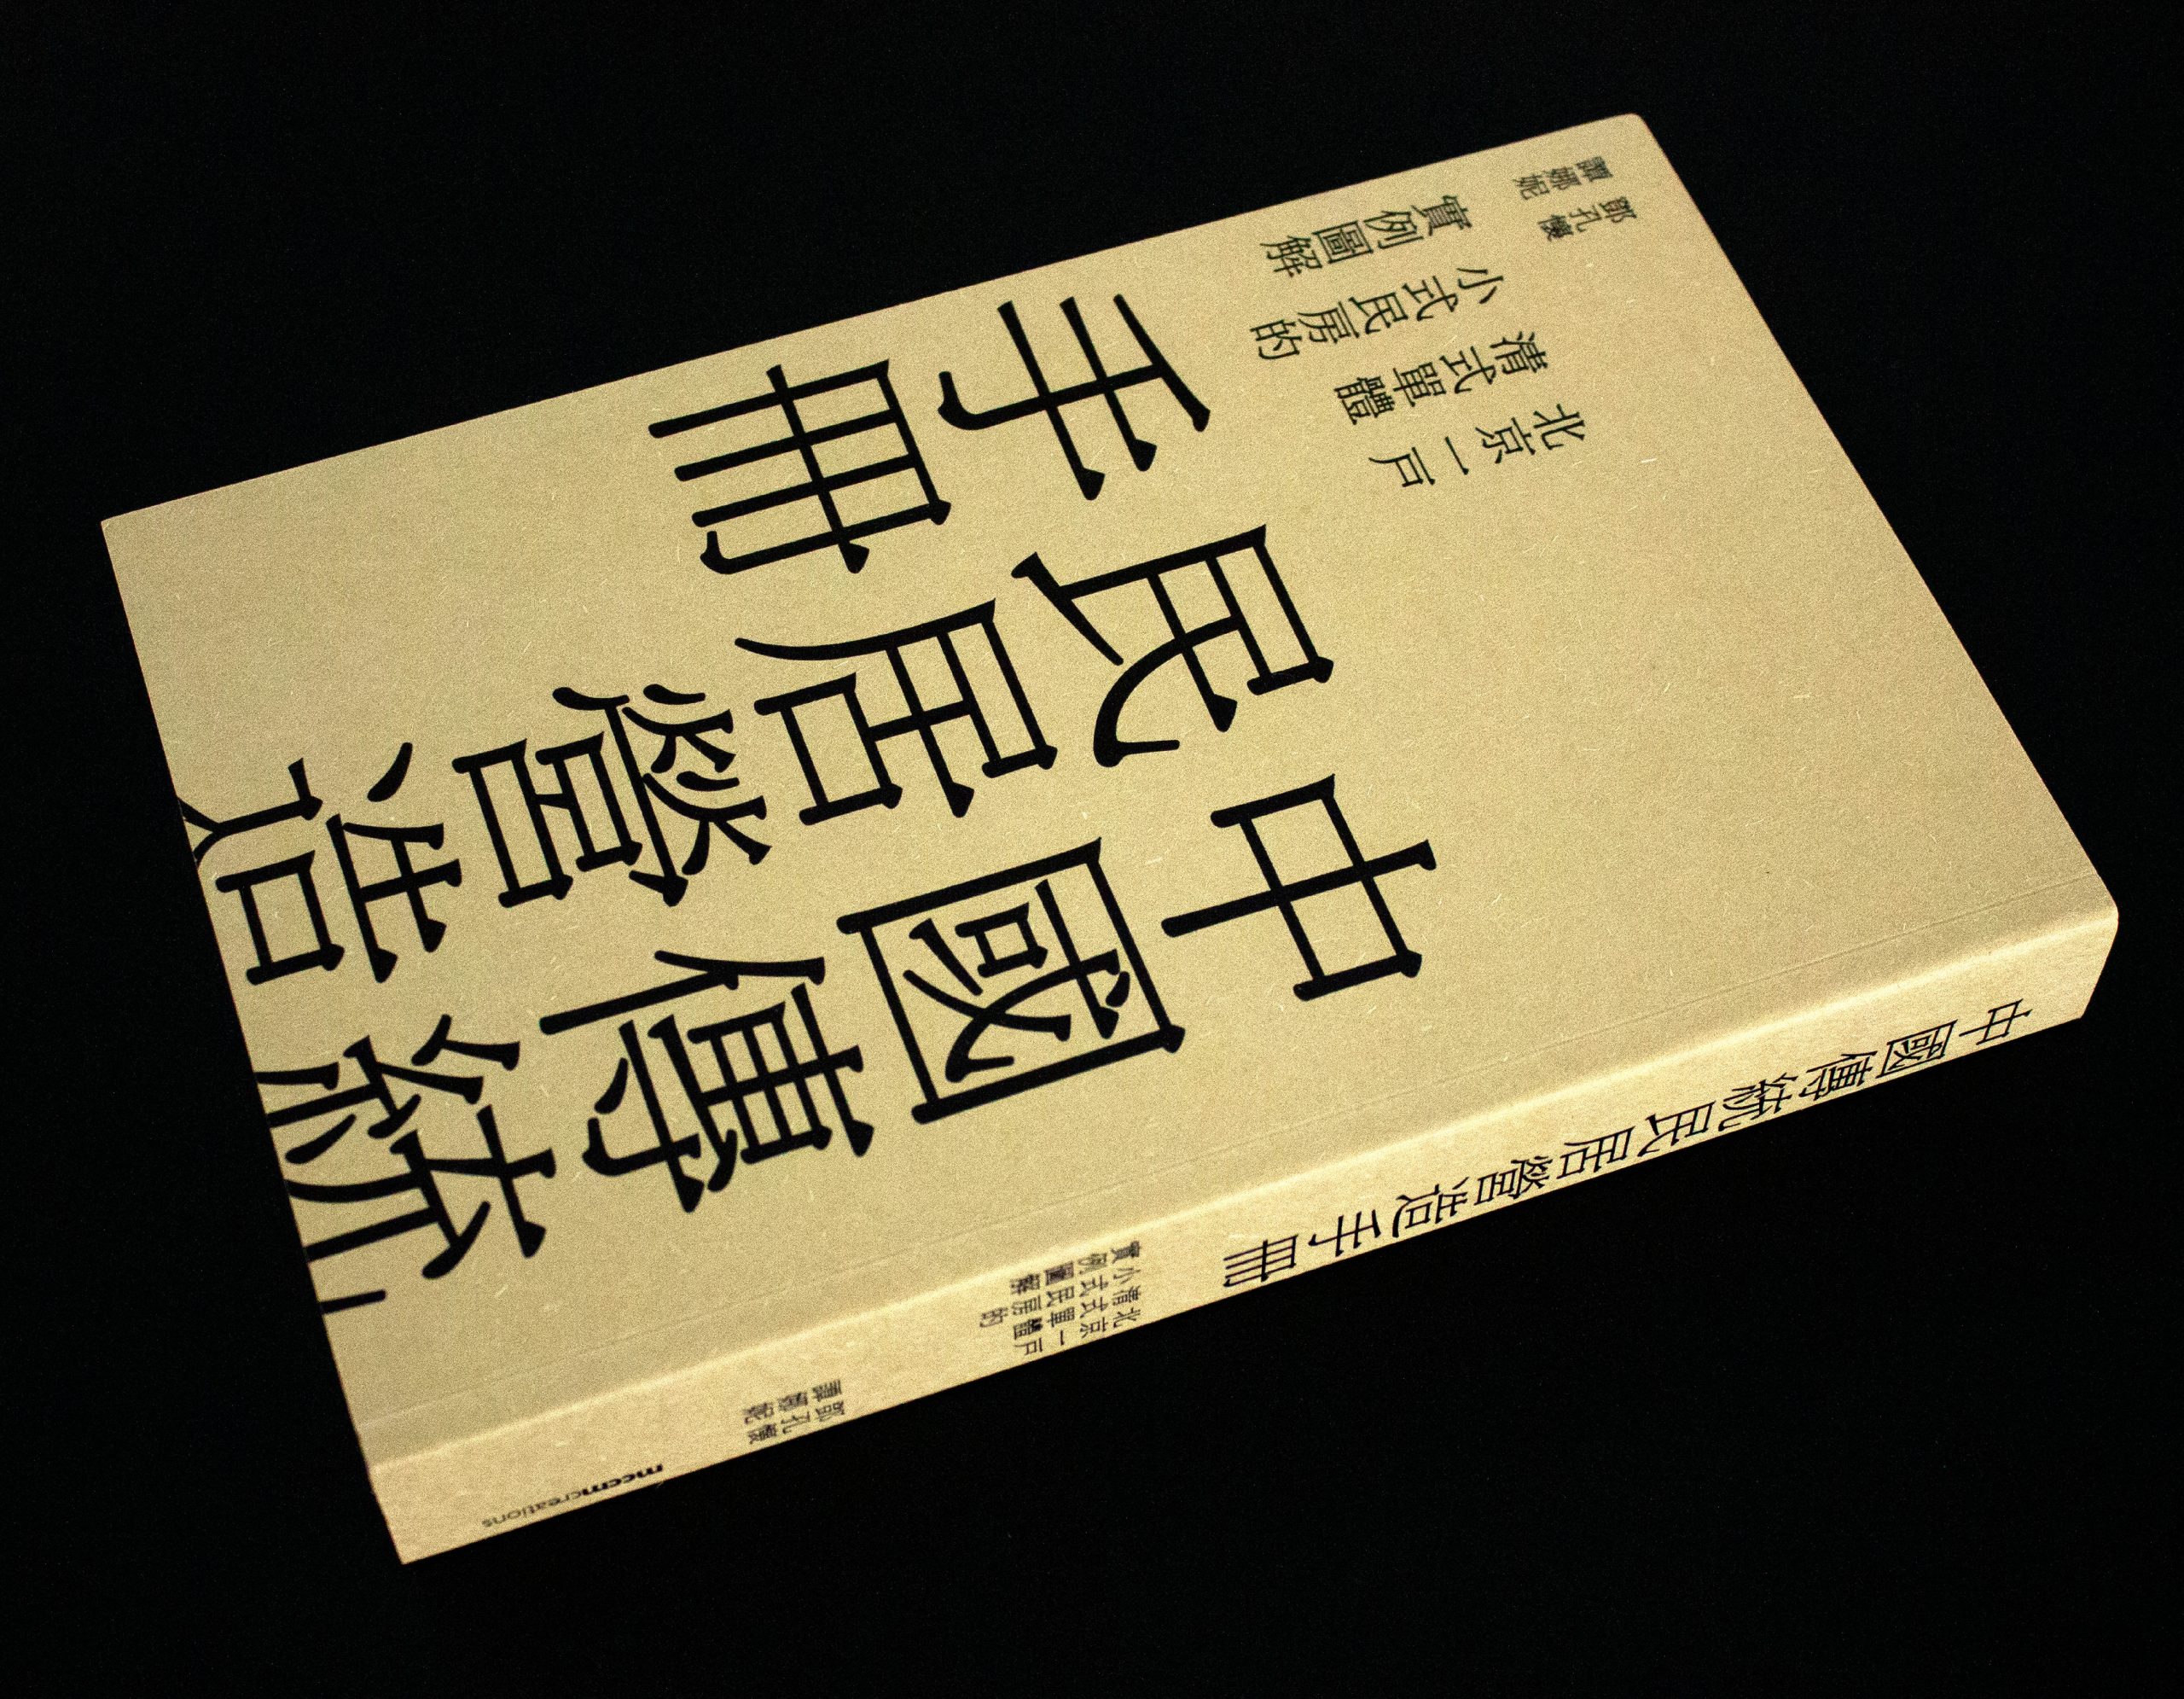 鄧孔懷
譚娜妮
北京一戶
清式單體
小式民房的
實例圖解
中國傳統
民居營造
手冊
中國傳統民居營造手冊
北京一戶
清式單體
小式民房的
實例圖解
鄧孔懷
譚娜妮
mccmcreations